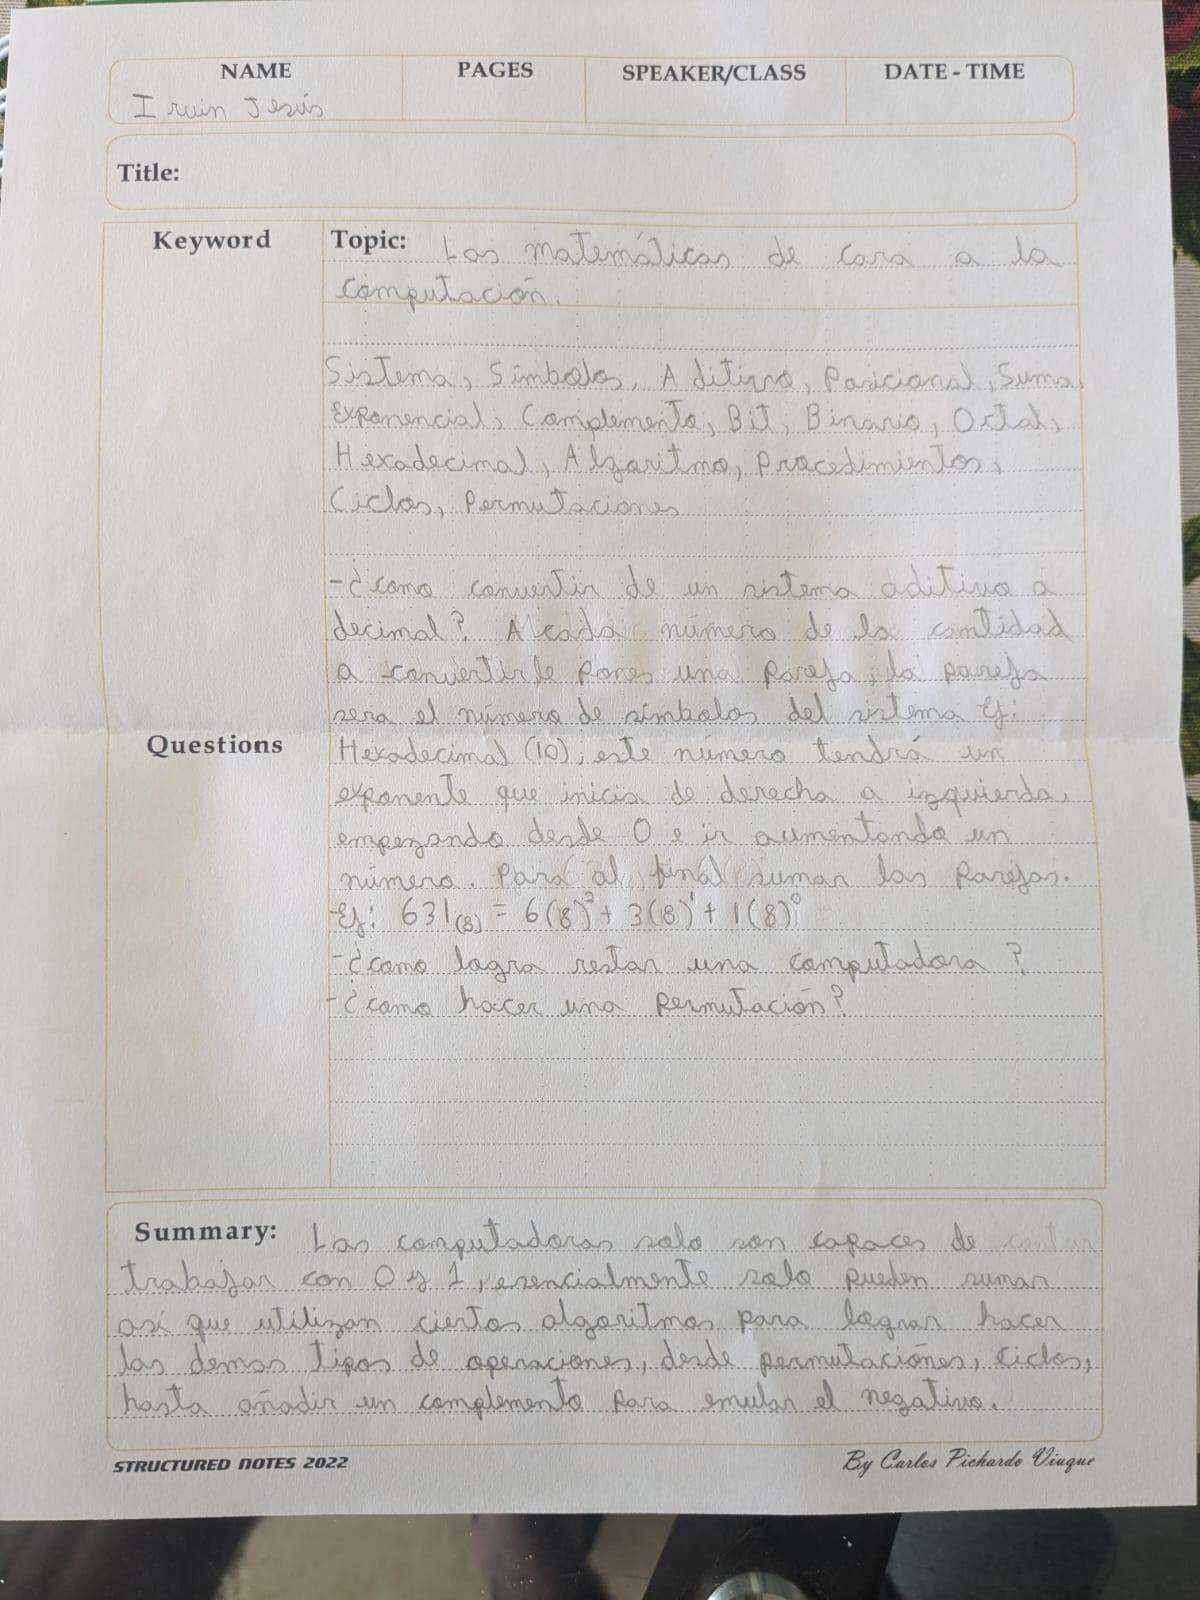 NAME PAGES SPEAKER/CLASS DATE - TIME
Iruin Jesús
Title:
Keyword
Topic: Las matemáticas de cara a la
computación.
Sistema, Símbolos, Aditivo, Posicional, Suma
Exponencial, Complemento, Bit, Binario, Octal,
Hexadecimal, Algoritmo, Procedimientos,
Ciclos, Permutaciones
-¿como convertir de un sistema aditivo a
decimal? A cada número de la cantidad
a convertir le pones una pareja, la pareja
sera el número de símbolos del sistema Ej:
Questions
Hexadecimal (16), este número tendrá un
exponente que inicia de derecha a izquierda,
empezando desde 0 e ir aumentando un
número. Para al final sumar las parejas.
-Ej: 631₍₈₎ = 6(8)² + 3(8)¹ + 1(8)⁰
-¿como logra restar una computadora?
-¿como hacer una permutación?
Summary: Las computadoras solo son capaces de
trabajar con 0 y 1, esencialmente solo pueden sumar
así que utilizan ciertos algoritmos para lograr hacer
las demas tipos de operaciones, desde permutaciones, ciclos,
hasta añadir un complemento para emular el negativo.
STRUCTURED NOTES 2022 By Carlos Pichardo Viuque